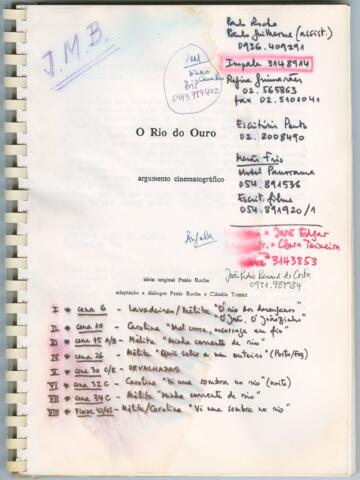 J.M.B.
Paulo Rocha
Paulo Guilherme (assist.)
0936.409291
Impala 3148914
Regina Guimarães
02.565863
fax 02.5101041
0943754402
Escritório Porto
02.2008490
O Rio do Ouro
Mesão Frio
Hotel Panorama
054.891536
argumento cinematográfico
Escrit. filme
054.891920/1
Ângela
José Edgar
Clara Teixeira
3143853
João Pedro Bénard da Costa
0931.987984
ideia original Paulo Rocha
adaptação e diálogos Paulo Rocha e Cláudia Tomaz
I * cena 6 - Lavadeiras/Mélita "O rio dos desenganos"
"O José, O Joãozinho"
II * cena 10 - Carolina "Mal corre, escorrega em fio"
III * cena 15 A/B - Mélita "Minha corrente de rio"
IV * cena 26 - Mélita "Quis subir a um outeiro" (Porto/)
V * cena 30 C/E - ORVALHADAS
VI * cena 32 C - Carolina "Vi uma sombra no rio" (noite)
VII * cena 34 C - Mélita "Minha corrente de rio"
VIII * FINAL - Mélita/Carolina "Vi uma sombra no rio"